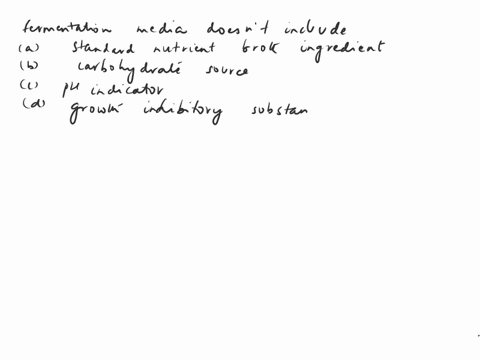 fermentation media doesn't include
(a) standard nutrient brok ingredient
(b) carbohydrate source
(c) pH indicator
(d) growth inhibitory substan